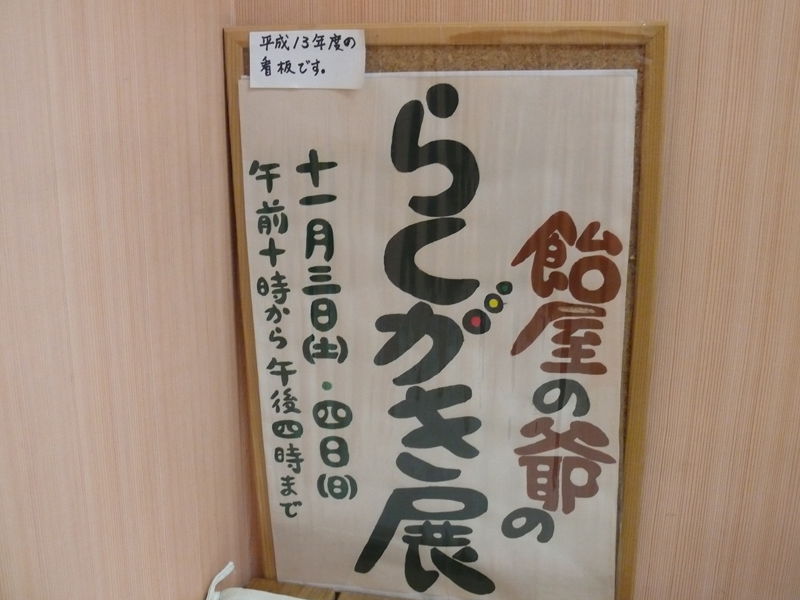 平成13年度の
看板です。
飴屋の爺の
らくがき展
十一月三日(土)・四日(日)
午前十時から午後四時まで